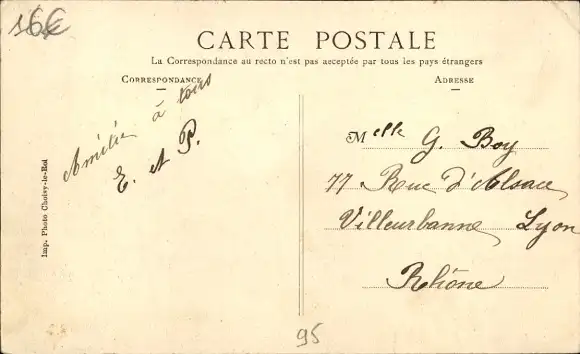 16€
CARTE POSTALE
La Correspondance au recto n'est pas acceptée par tous les pays étrangers
CORRESPONDANCE
ADRESSE
Amitiés à tous
E. et P.
Imp. Photo Choisy-le-Roi
Melle G. Boy
77 Rue d'Alsace
Villeurbanne Lyon
Rhône
95